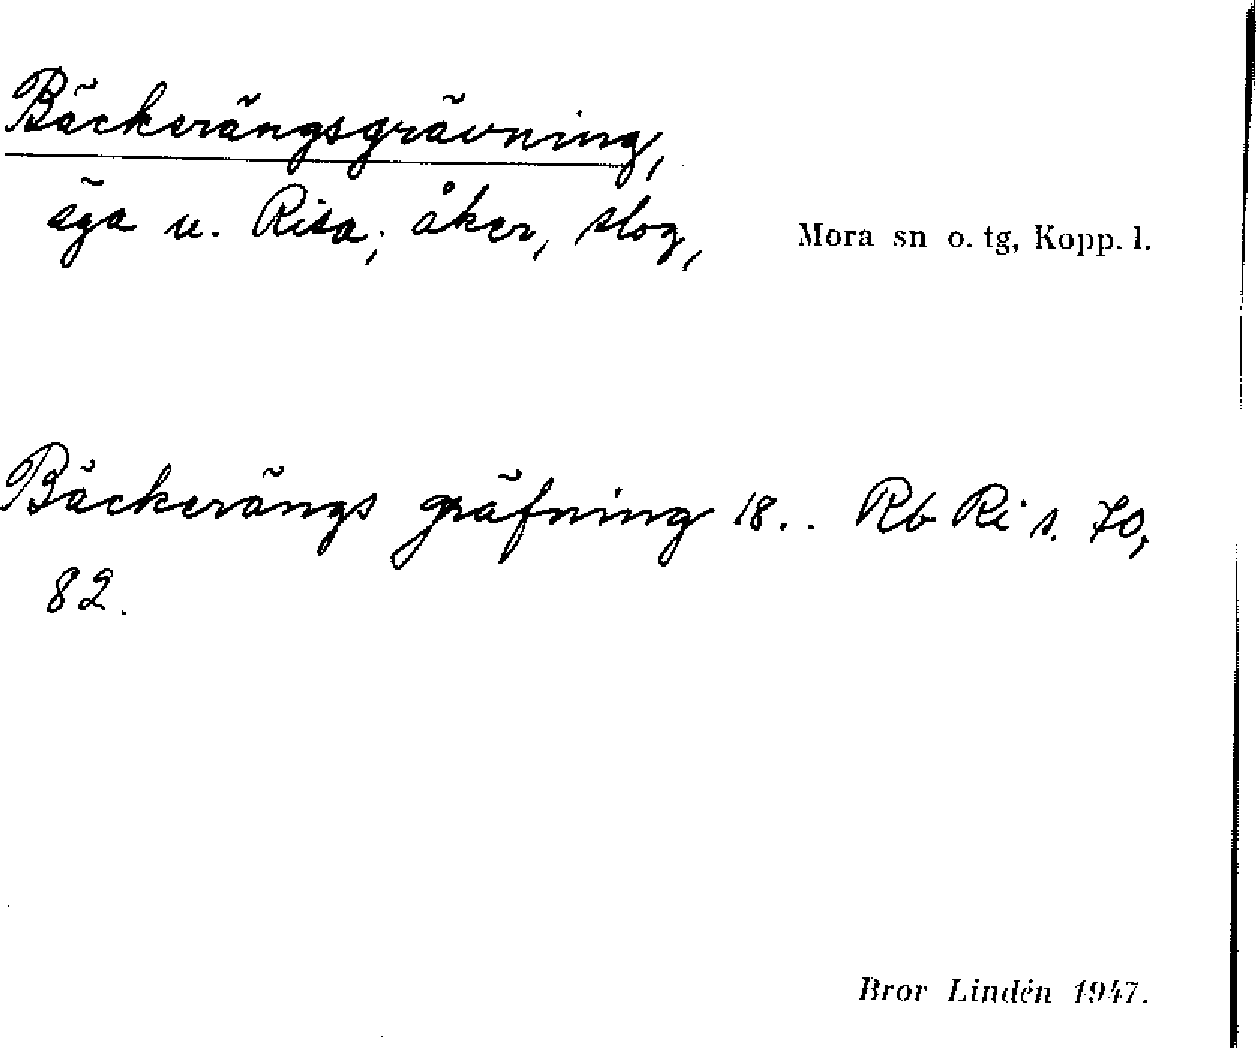 Bäckerängsgrävning,
äga u. Risa; åker, slog,
Mora sn o. tg, Kopp. l.
Bäckerängs gräfning 18.. Rb Ri s. 70,
82.
Bror Lindén 1947.